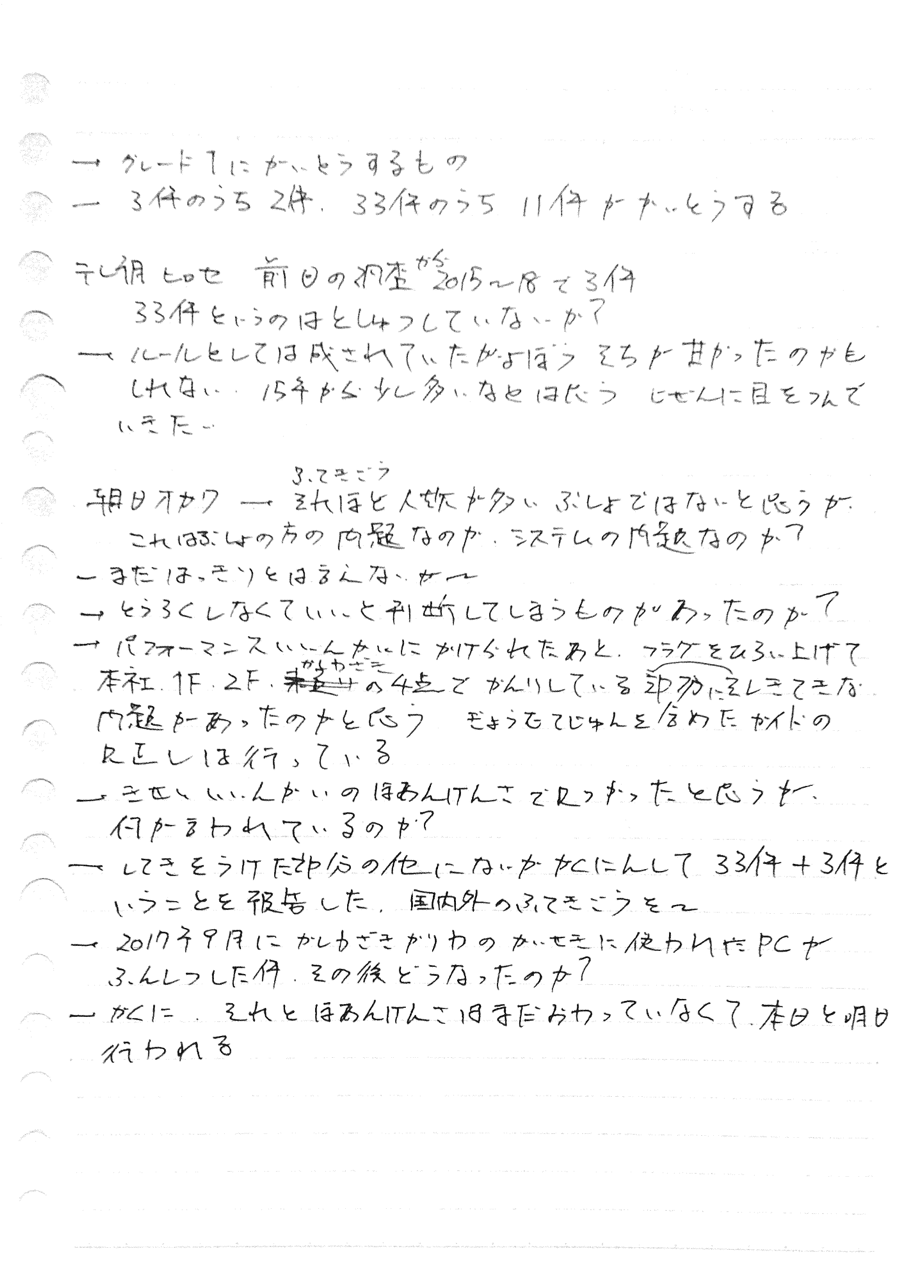 → グレード1にがいとうするもの
ー 3件のうち2件、33件のうち 11件ががいとうする
テレ朝 ヒロセ 前日の調査から2015〜18で3件
33件というのはとしゅつしていないか?
→ ルールとしては成されていたがよぼうそちが甘かったのかも
しれない. 15年から少し多いなとは思う じぜんに目をつんで
いきたい
ふてきごう
朝日オカワ → それほど人数が多いぶしょではないと思うが、
これはぶしょの方の問題なのか、システムの問題なのか?
ー まだはっきりとは言えないが〜
→ とうろくしなくていいと判断してしまうものがあったのか?
→ パフォーマンスいいんかいにかけられたあと、フラグをひろい上げて
かしわざき
本社、1F、2F、の4点でかんりしている 部分にそしきてきな
問題があったのかと思う ぎょうむてじゅんを含めたガイドの
見直しは行っている
→ きせいいいんかいのほあんけんさで見つかったと思うが、
何が言われているのか?
ー してきをうけた部分の他にないかかくにんして 33件+3件と
いうことを報告した、国内外のふてきごうを〜
→ 2017年9月にかしわざきかりわのかいせきに使われたPCが
ふんしつした件、その後どうなったのか?
→ かくに、それとほあんけんさはまだおわっていなくて、本日と明日
行われる